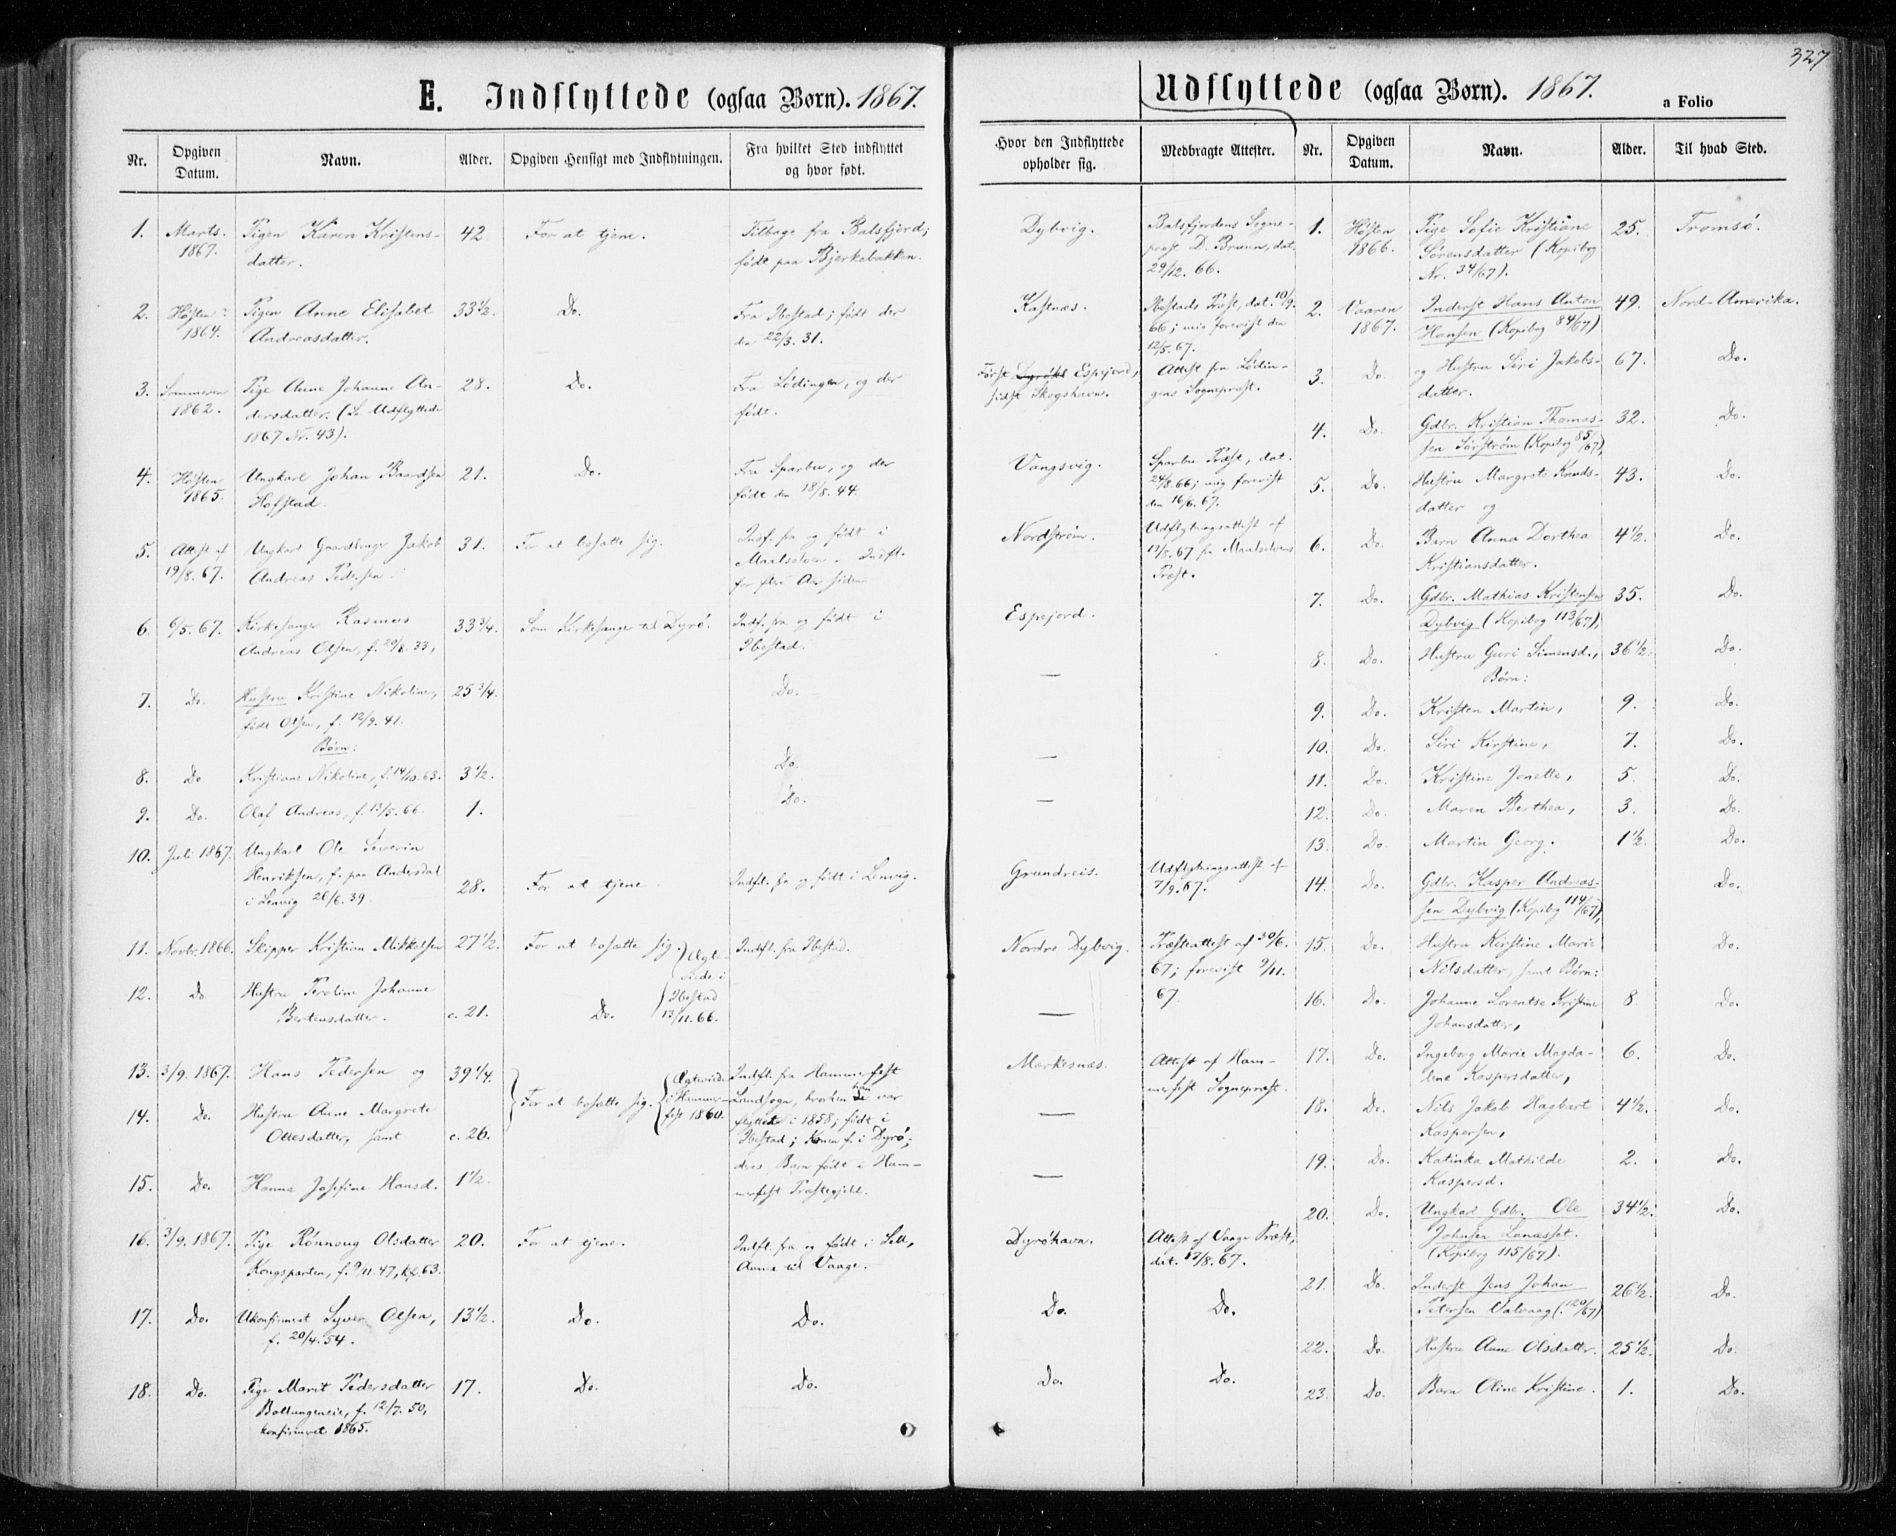 327
E. Indflyttede (ogsaa Børn). 1867.
Nr.
Opgiven Datum.
Navn.
Alder.
Opgiven Hensigt med Indflytningen.
Fra hvilket Sted indflyttet og hvor født.
Hvor den Indflyttede opholder sig.
Medbragte Attester.
1. Marts. 1867. Pigen Karen Kristens- 42 For at tjene. Tilbage fra Balsfjord; Dybvig. Balsfjordens Sogne-
datter. født paa Bjerkebakken. præst D. Bruun, dat.
29/12. 66.
2. Høsten 1864. Pigen Anne Elisabet 33 1/2. Do. Fra Ibestad; født der Kastnæs. Ibestads Præst, dat. 10/9.
Andreasdatter. den 22/3. 31. 66; mig forevist den
12/5. 67.
3. Sommeren 1862. Pige Anne Johanne An- 28. Do. Fra Lødingen, og der Først Dyrøkl Espejord, Attest fra Lødin-
dersdatter. (Se Udflyttede født. sidst Skogshavn. gens Sognepræst.
1867 Nr. 43).
4. Høsten 1865. Ungkarl Johan Baardsen 21. Do. Fra Sparbu, og der Vangsvig. Sparbu Præst, dat.
Hofstad. født den 18/8. 44. 24/8. 66; mig forevist
den 16/6. 67.
5. Attest af 19/8. 67. Ungkarl Gaardbruger Jakob 31. For at bosætte sig. Indf. fra og født i Nordstrøm. Udflytningsattest af
Andreas Pedersen. Maalselven. Indfl. 13/8. 67 fra Maalselvens
for flere Aar siden Præst.
6. 6/5. 67. Kirkesanger Rasmus 33 3/4. Som Kirkesanger til Dyrø. Indf. fra og født i Espejord.
Andreas Olsen, f. 29/8. 33, Ibestad.
7. Do. Hustru Kristine Nikoline, 25 3/4. Do. —
født Olsen, f. 12/9. 41.
Børn:
8. Do. Kristiane Nikoline, f. 14/10. 63. 3 1/2. Do. —
9. Do. Olaf Andreas, f. 13/5. 66. 1. Do. —
10. Juli 1867. Ungkarl Ole Severin
Henriksen, f. paa Andersdal 28. For at tjene. Indfl. fra og født i Lenvig. Grundreis. Udflytningsattest af
i Lenvig 26/6. 39. 7/9. 67.
11. Novbr. 1866. Skipper Kristian Mikkelsen 27 1/2. For at bosætte sig. Ægte- Indfl. fra Ibestad. Nordre Dybvig. Præsteattest af 30/6.
viede i 67; forevist 9/11.
12. Do Hustru Peroline Johanne Ibestad 67.
Bertensdatter. c. 21. Do. 13/11. 66. —
13. 3/9. 1867. Hans Pedersen og 39 1/4. Ægteviede Indfl. fra Hammerfest Markesnæs. Attest af Ham-
For at bosætte sig. i Hammer- Landsogn, hvorhen han var merfest Sognepræst.
14. Do. Hustru Anne Margrete fest 1860. flyttet i 1858; født i —
Ottesdatter, samt c. 26. Ibestad; Konen f. i Dyrø;
15. Do. Hanna Josefine Hansd. 1 1/2. deres Barn født i Ham- —
merfest Præstegjeld.
16. 3/9. 1867. Pige Rønnoug Olsdatter 20. For at tjene. Indfl. fra og født i Sell, Dyrøhavn. Attest af Vaage Præst,
Kongsparten, f. 9/11. 47, kf. 63. Annex til Vaage. dat. 17/8. 67.
17. Do. Ukonfirmeret Syver Olsen, 13 1/2. Do. Do. Do. Do.
f. 20/4. 54.
18. Do. Pige Marit Pedersdatter 17. Do. Do. Do. Do.
f. 12/7. 50,
konfirmeret 1865.
Udflyttede (ogsaa Børn). 1867.
a Folio
Nr.
Opgiven Datum.
Navn.
Alder.
Til hvad Sted.
1. Høsten 1866. Pige Sofie Kristiane 25. Tromsø.
Sørensdatter (Kopibog
Nr. 34/67).
2. Vaaren 1867. Inderst Hans Anton 49. Nord-Amerika.
Hansen (Kopibog 84/67)
3. Do. og Hustru Siri Jakobs- 67. Do.
datter.
4. Do. Gdbr. Kristian Thomas- 32. Do.
sen Sørstrøm (Kopibog 85/67),
5. Do. Hustru Margrete Knuds- 43. Do.
datter og
6. Do. Barn Anna Dorthea 4 1/2. Do.
Kristiansdatter.
7. Do. Gdbr. Mathias Kristensen 35. Do.
Dybvig (Kopibog 113/67),
8. Do. Hustru Guri Simensd., 36 1/2. Do.
Børn:
9. Do. Kristen Martin, 9. Do.
10. Do. Siri Kirstine, 7. Do.
11. Do. Kristine Jonette, 5. Do.
12. Do. Maren Berthea, 3. Do.
13. Do. Martin Georg. 1 1/2. Do.
14. Do. Gdbr. Kasper Andreas- Do.
sen Dybvig (Kopibog 114/67),
15. Do. Hustru Kirstine Marie Do.
Nilsdatter, samt Børn:
16. Do. Johanne Lorentse Kristine 8. Do.
Johansdatter,
17. Do. Ingeborg Marie Magda- 6. Do.
lene Kaspersdatter,
18. Do. Nils Jakob Hagbart 4 1/2. Do.
Kaspersen,
19. Do. Katinka Mathilde 2. Do.
Kaspersd.
20. Do. Ungkarl Gdbr. Ole 34 1/2. Do.
Johnsen Lanæsset.
(Kopibog 115/67).
21. Do. Inderst Jens Johan 26 1/2. Do.
Petersen Valvaag (120/67)
22. Do. Hustru Anne Olsdatter. 25 1/2. Do.
23. Do. Barn Oline Kristine. 1. Do.